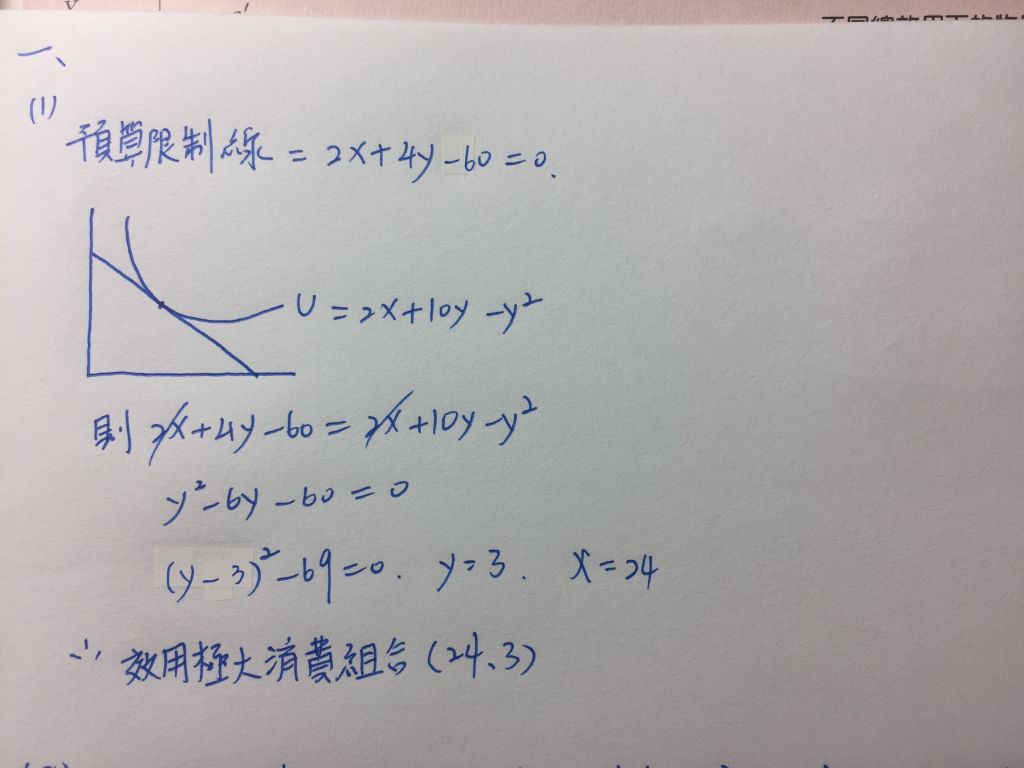 一、
(1)
預算限制線 = 2x+4y-60=0.
U = 2x+10y-y²
則 2x+4y-60 = 2x+10y-y²
y²-6y-60=0
(y-3)²-69=0. y=3. x=24
∴ 效用極大消費組合(24、3)